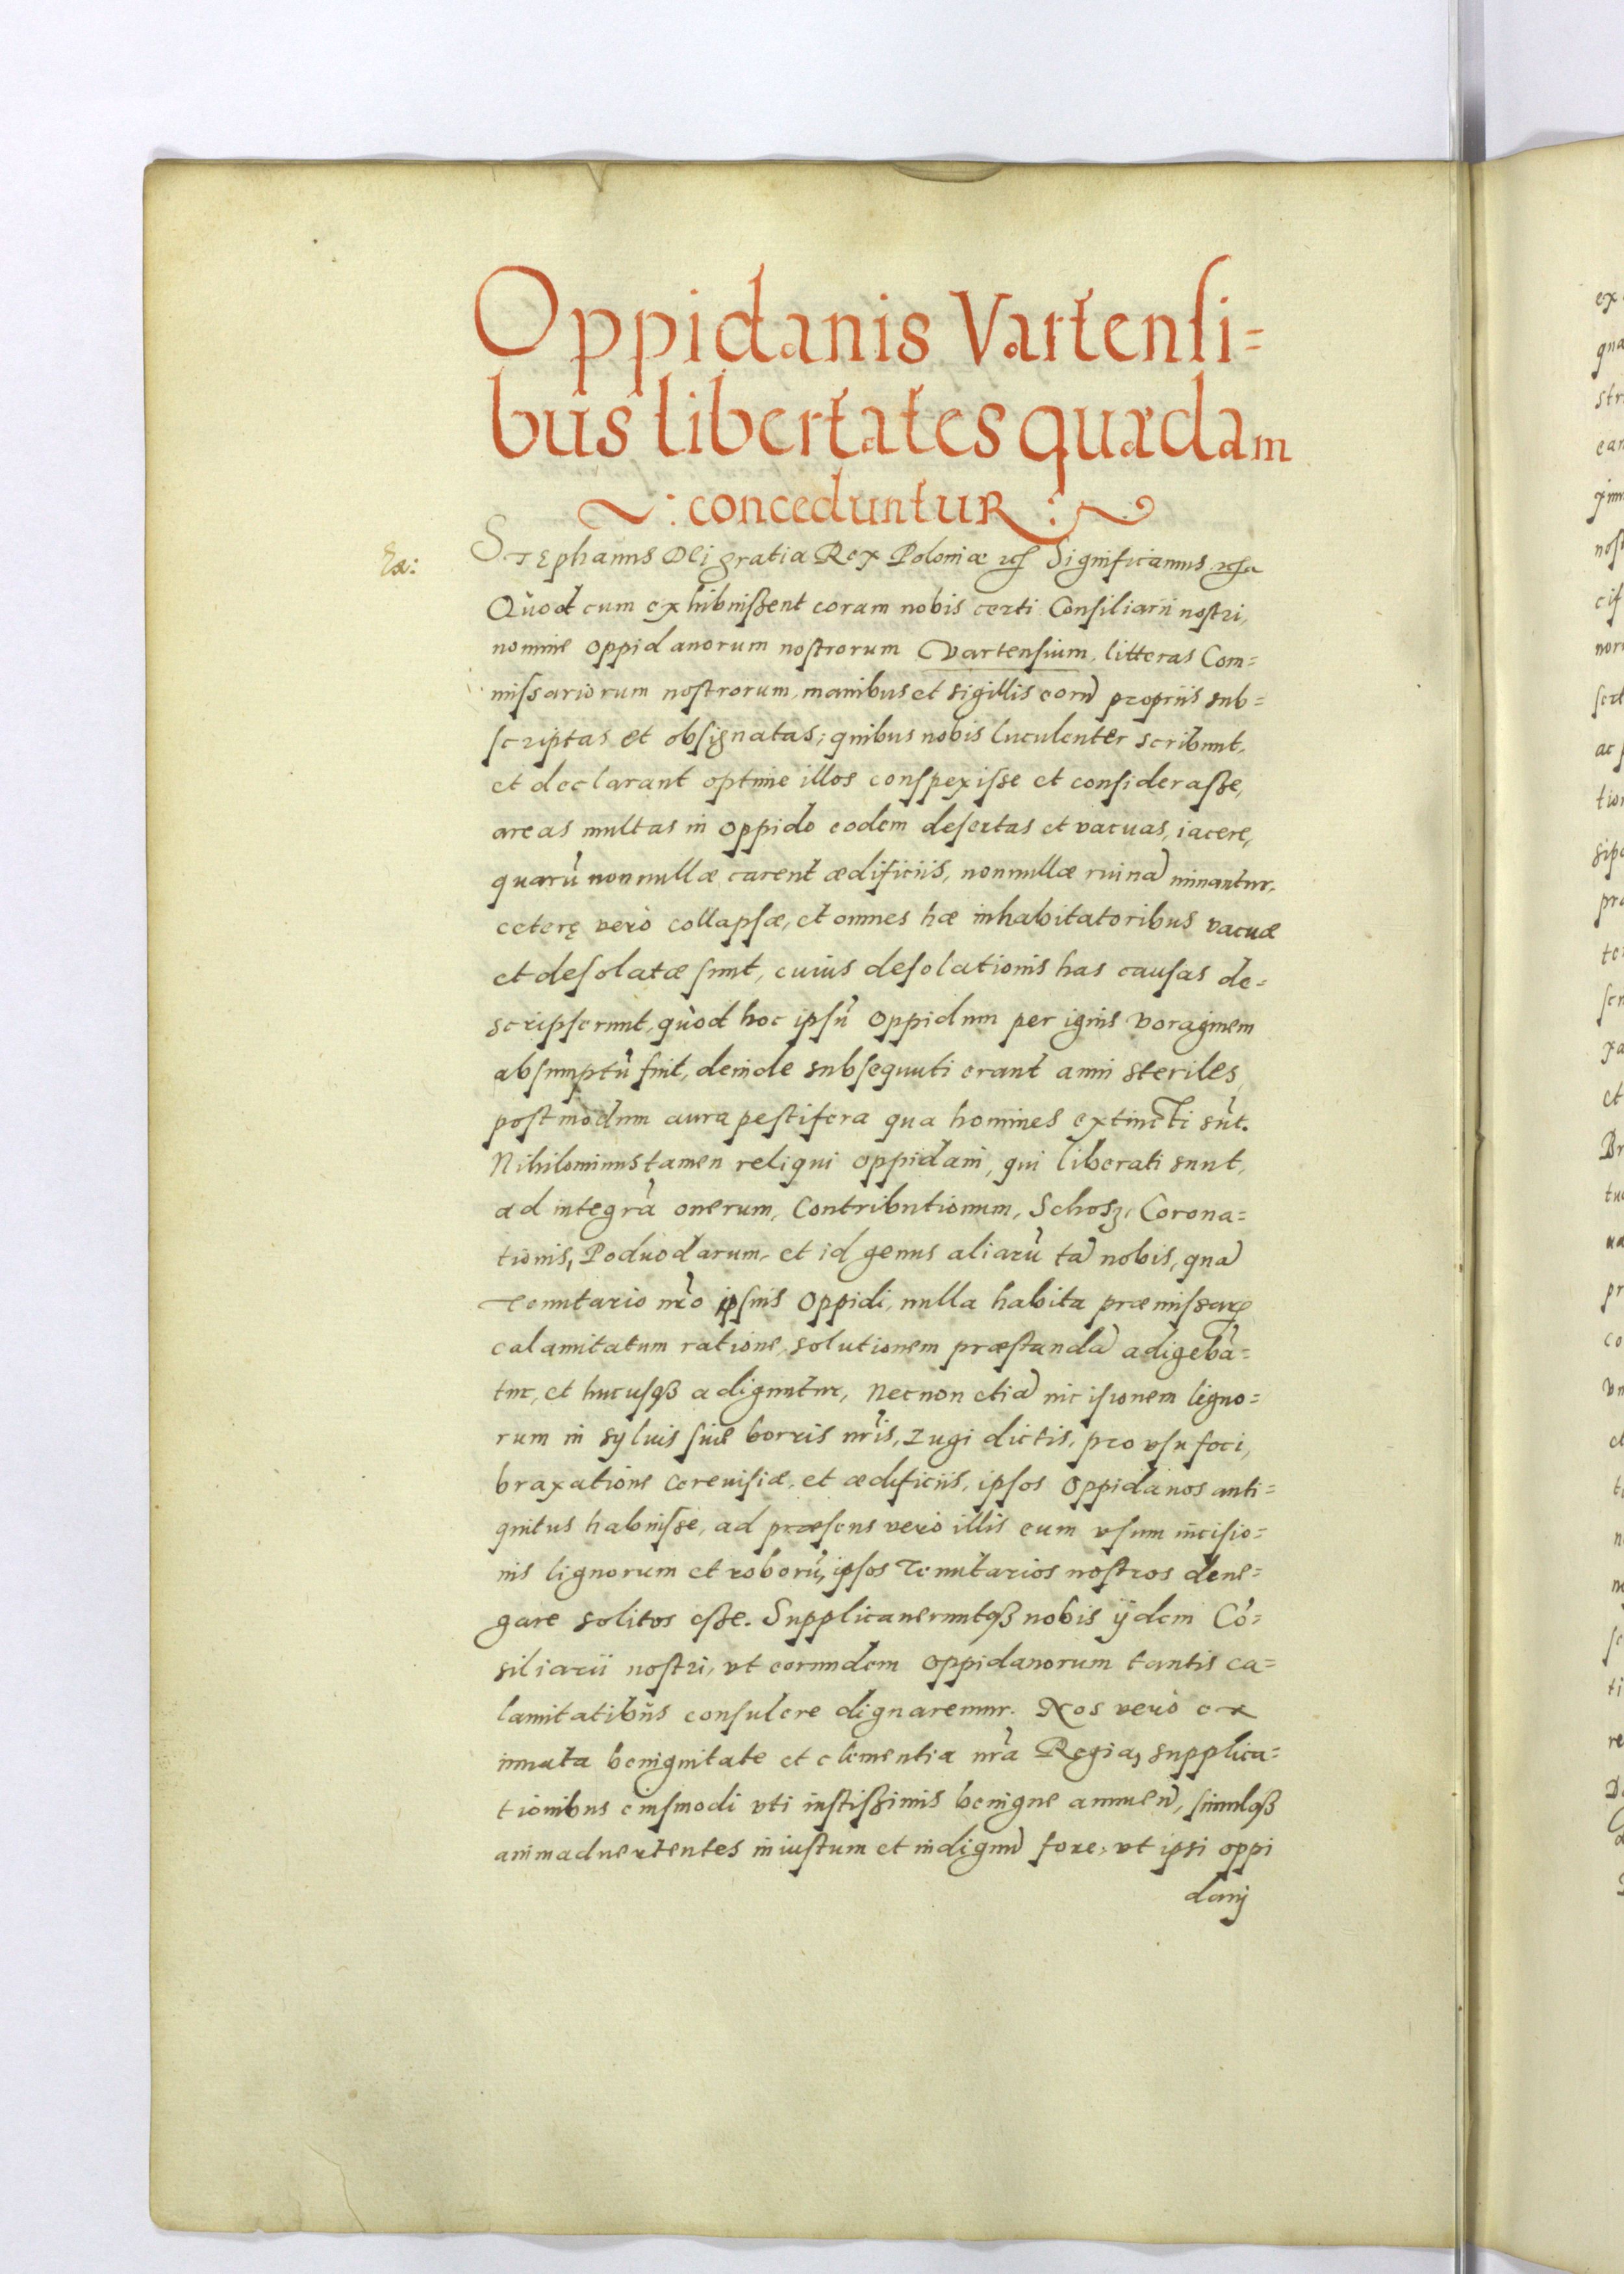 Oppidanis Vartensi=
bus libertates quædam
~: conceduntur :~
Ex:
Stephanus Dei gratia Rex Poloniæ etc. Significamus etc.
Quod cum exhibuissent coram nobis certi Consiliarii nostri,
nomine oppidanorum nostrorum Vartensium, litteras Com=
missariorum nostrorum, manibus et sigillis eorũ propriis sub=
scriptas et obsignatas; quibus nobis luculenter scribunt,
et declarant optime illos conspexisse et considerasse,
areas multas in oppido eodem desertas et vacuas, iacere,
quarũ nonnullæ carent ædificiis, nonnullæ ruinã minantur,
ceterę verò collapsæ, et omnes hæ inhabitatoribus vacuæ
et desolatæ sunt, cuius desolationis has causas de=
scripserunt, quòd hoc ipsũ oppidum per ignis voraginem
absumptũ fuit, deinde subsequuti erant anni steriles,
postmodum aura pestifera qua homines extincti sũt.
Nihilominus tamen reliqui oppidani, qui liberati sunt,
ad integrã onerum, Contributionum, Schosz, Corona=
tionis, Poduodarum, et id genus aliarũ tã nobis, quã
Tenutario nr̃o ipsius oppidi, nulla habita præmissarum
calamitatum ratione, solutionem præstandã adigebã=
tur, et hucusqȝ adiguntur, necnon etiã incisionem ligno=
rum in syluis siue borris nr̃is, Zugi dictis, pro vsu foci,
braxatione Cereuisiæ, et ædificiis, ipsos oppidanos anti=
quitus habuisse, ad præsens verò illis eum vsum incisio=
nis lignorum et roborũ, ipsos Tenutarios nostros dene=
gare solitos esse. Supplicaueruntqȝ nobis ijdem Cõ=
siliarii nostri, vt eorundem oppidanorum tantis ca=
lamitatibus consulere dignaremur. Nos verò ex
innata benignitate et clementia nr̃a Regia, supplica=
tionibus eiusmodi vti iustissimis benigne annueñ, simulqȝ
animaduertentes iniustum et indignũ fore, vt ipsi oppi
danj